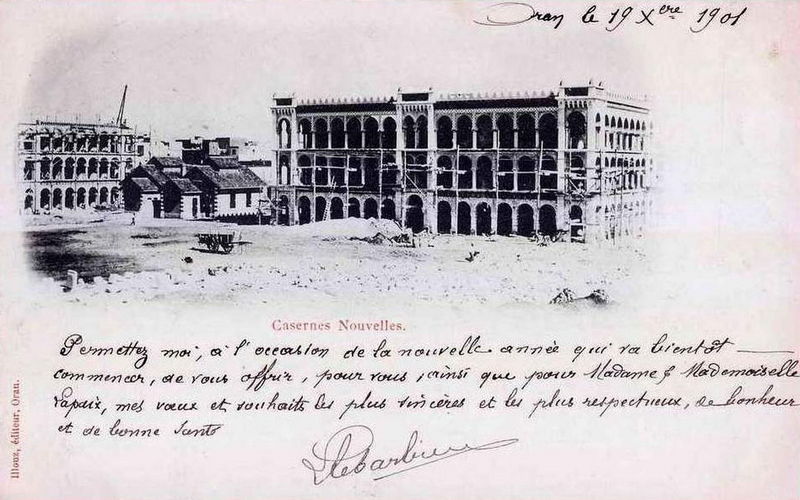 Oran le 19 Xbre 1901
Casernes Nouvelles.
Permettez moi, à l'occasion de la nouvelle année qui va bientôt
commencer, de vous offrir, pour vous, ainsi que pour Madame & Mademoiselle
Lapaix, mes vœux et souhaits les plus sincères et les plus respectueux, de bonheur
et de bonne santé
Illouz, éditeur, Oran.